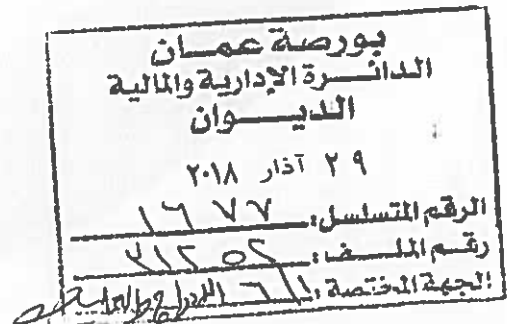 بورصة عمان
الدائرة الإدارية والمالية
الديوان
٢٩ آذار ٢٠١٨
الرقم المتسلسل: ١٦٧٧
رقم الملف: ٣١٢٥٢
الجهة المختصة: الإدراج